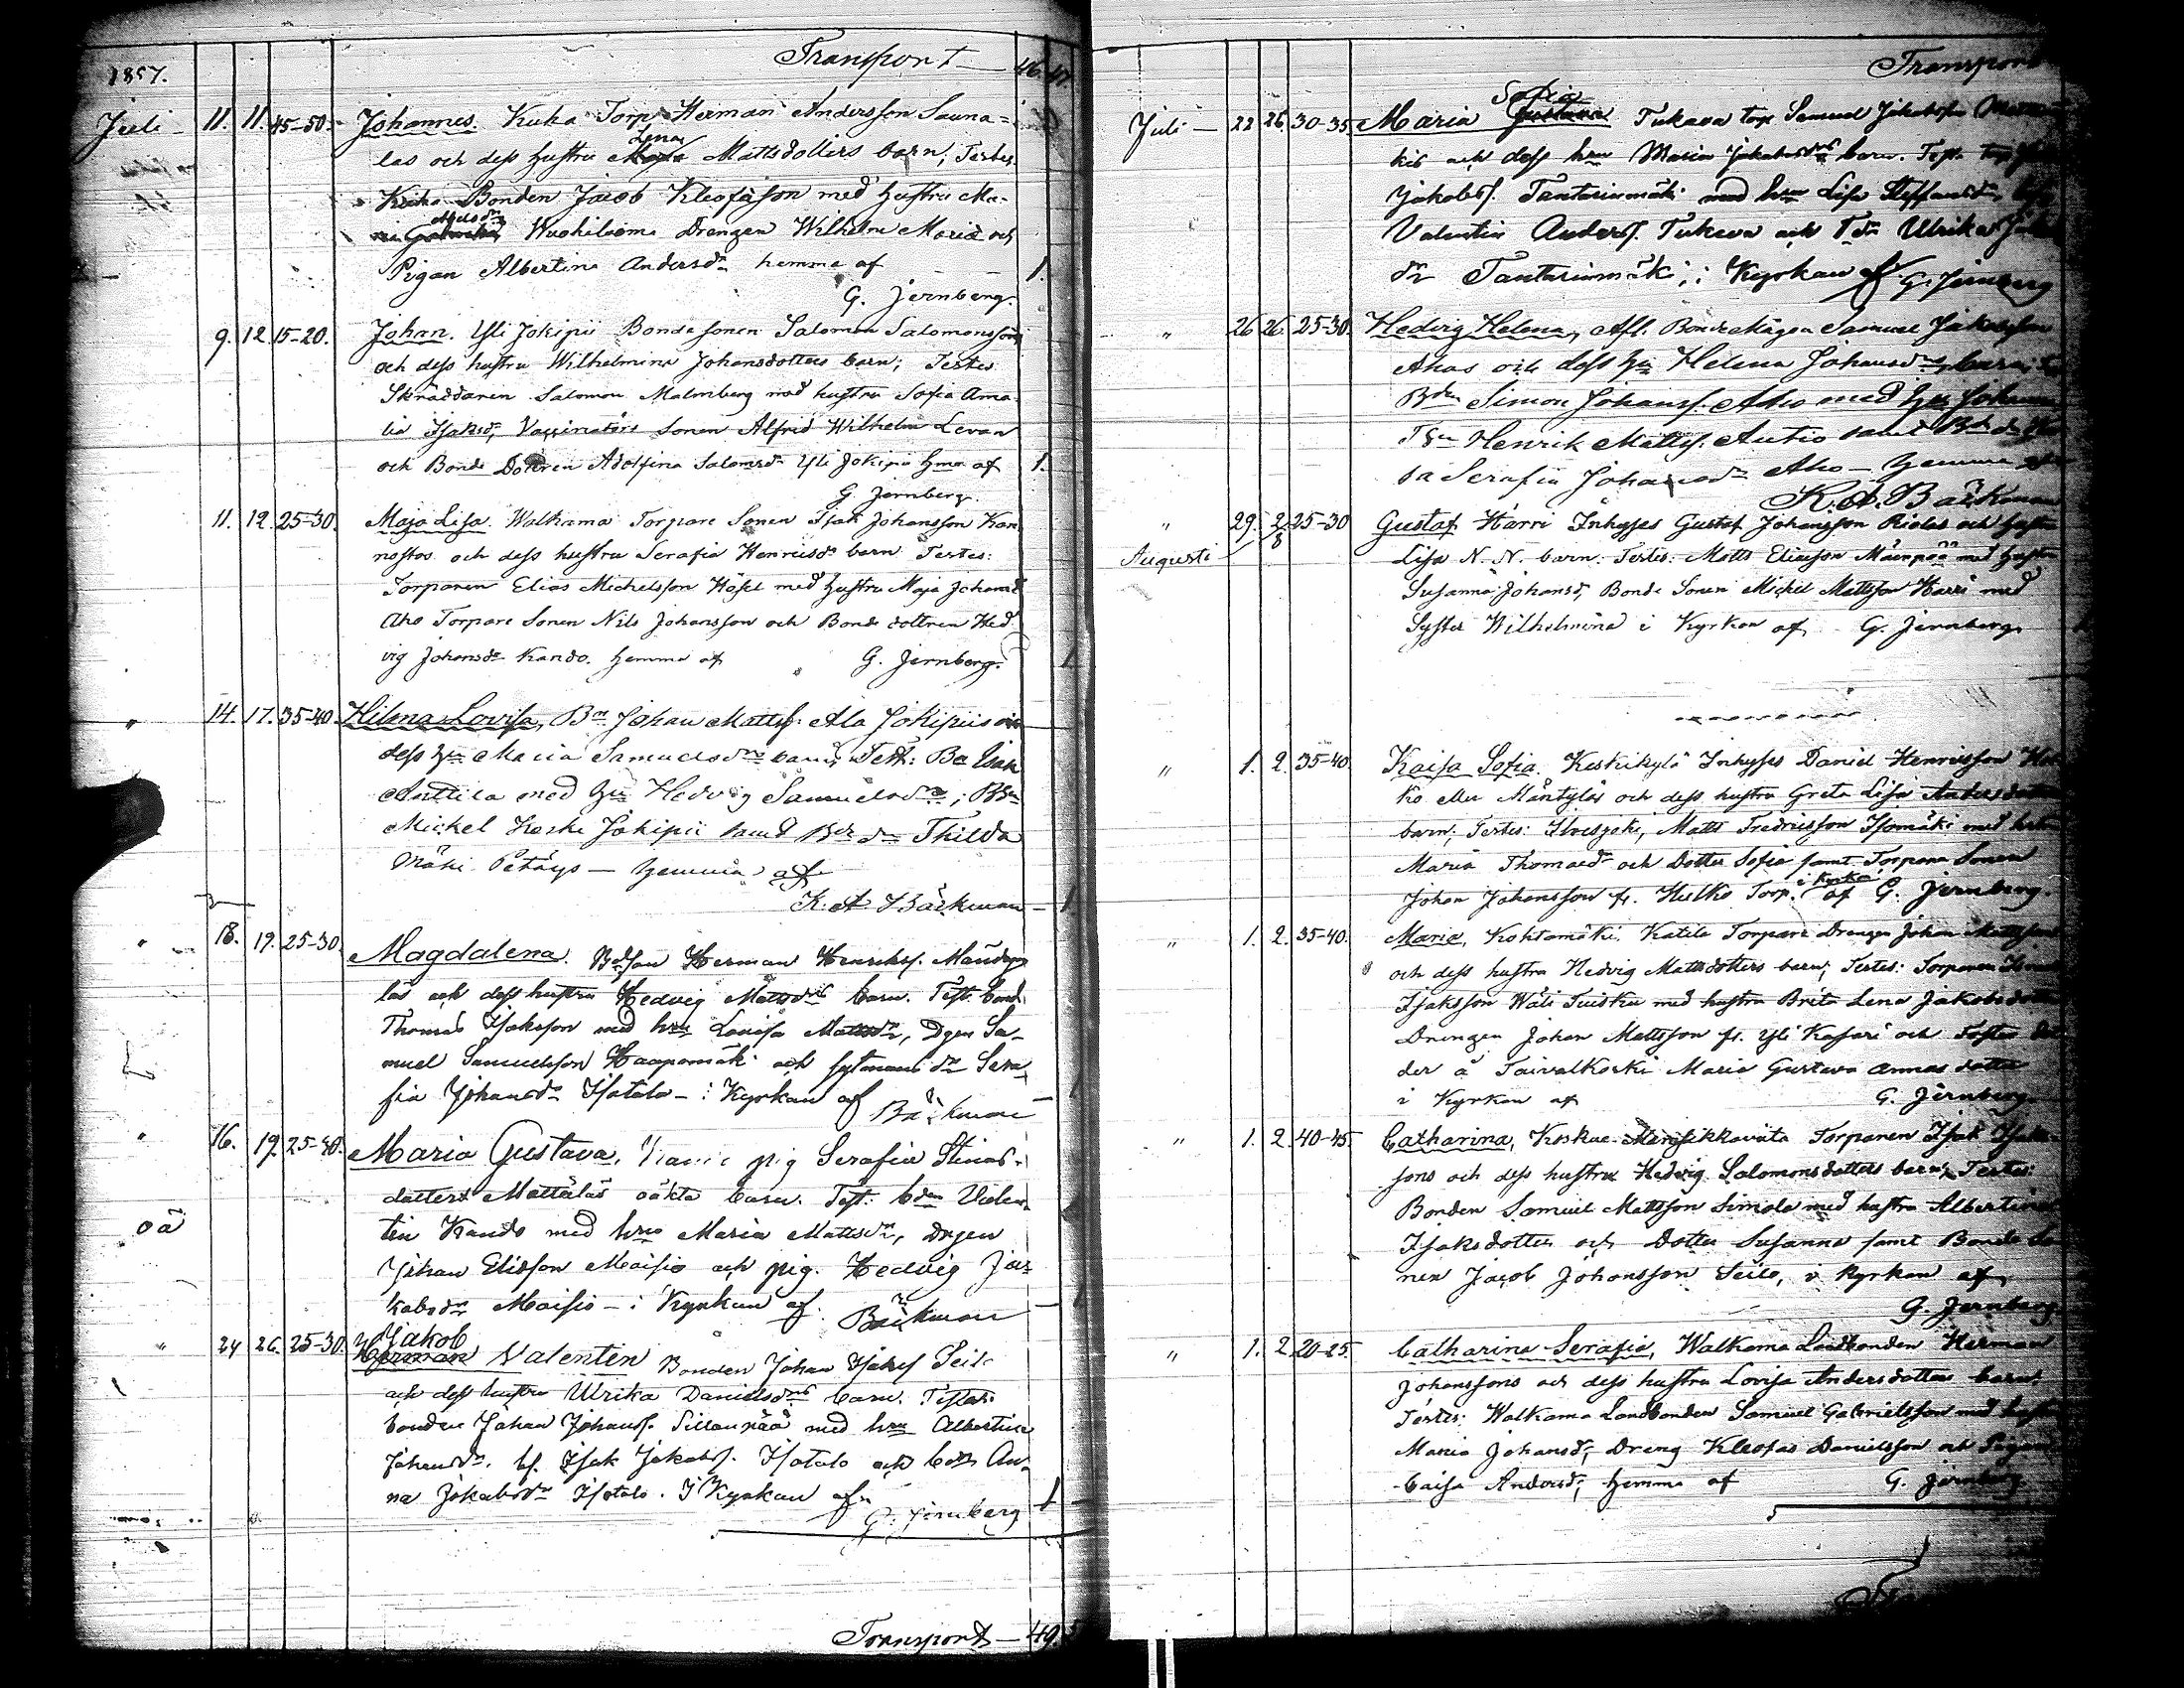 Transport 46. 47.
1857.
Juli 11. 11. 45-50. Johannes. Kuha Torp. Herman Andersson Sauna-
Lena
las och dess hustru Maja Mattsdotters barn; Testes.
Kuha Bonden Jacob Kleofason med hustru Ma-
Drengen Wilhelm Maria och
Pigan Albertina Andersdr hemma af 1.
G. Jernberg.
9. 12. 15-20. Johan. Yli Jokipii Bonde sonen Salomon Salomonsson
och dess hustru Wilhelmina Johansdotters barn; Testes
Skräddaren Salomon Malmberg med hustru Sofia Ama-
lia Isaksd, Vaccinatörs sonen Alfrid Wilhelm Levan
och Bonde Dottren Adolfina Salomsdr Yli Jokipii hma af 1.
G. Jernberg.
11. 12. 25-30. Maja Lisa. Walkama Torpare Sonen Isak Johansson Kan
nostos och dess hustru Serafia Henricsdr barn Testes:
Torparen Elias Michelsson Hosel med hustru Maja Johansd
Aho Torpare Sonen Nils Johansson och Bonde dottren Hed
vig Johansdr Kando. hemma af G. Jernberg. 1
" 14. 17. 35-40. Hilma Lovisa, Bn Johan Mattss. Ala Jokipiis och
dess hu Maria Samuelsdrs barn, Test: Bn Isak
Anttila med hu Hedvig Samuelsdr;
Michel Keski Jokipii samt Thilda
Mäki Petäys — hemma af
K. A Bäckman 1
" 18. 19. 25-30. Magdalena. Bdson Herman Henrikss. Mändy-
läs och dess hustru Hedvig Mattsdrs barn. Test. bond.
Thomas Isaksson med hru Lovisa Mattsdr, Dgen Sa-
muel Samuelsson Haapamäki och Sera-
fia Johansdr Isotalo — i Kyrkan af Bäckman
" 16. 19. 25-30. Maria Gustava, pig Serafia Stinas-
oä
dotters Mattäläs oäkta barn. Test: bden Valen-
tin Kando med hru Maria Mattsdr, drgen
Johan Eliasson Maisio och pig. Hedvig Ja-
kobsdr Maisio — i Kyrkan af. Bäckman
Jakob
" 24 26. 25-30. Herman Valentin Bonden Johan Isakss Seilo
och dess hustru Ulrika Danielsdrs barn. Testes:
bonden Johan Johanss. Sillanpää med hru Albertina
Johansdr. bs. Isak Jakobs. Isotalo och bdr An-
na Jakobsdr Isotalo. I Kyrkan af 1
G. Jernberg
Transport — 49.
Transport
Sofia
Juli — 22 26 30-35 Maria Gustava Tukeva torp Samuel Jakobsson
kis och dess hru Maria Jakobsdrs barn. Test. torp
Jakobss. Tantarinmäki med hru Lisa Steffansdr,
Valentin Anderss. Tukeva och Tdr Ulrika
dr Tantarinmäki; i Kyrkan af G. Jernberg
" 26 26. 25-30. Hedvig Helena, Afl. Bondemågen Samuel Jakobsson
Ahos och dess hu Helena Johansdrs barn;
Bden Simon Johanss. Aho med hu
Henrik Mattss. Autio samt
sa Serafia Johansdr Aho — hemma af
K. A. Bäckman
" 29. 2/8 25-30 Gustaf Harri Inhyses Gustaf Johansson Riolas och hustru
Augusti
Lisa N. N. barn. Testes: Matts Eliasson Mäenpää med hustru
Susanna Johansd, Bonde Sonen Michel Mattsson Harri med
Syster Wilhelmina i Kyrkan af G. Jernberg
" 1. 2. 35-40. Kaisa Sofia. Keskikylä Inhyses Daniel Henricsson
ko eller Mäntyläs och dess hustru Greta Lisa Andersdotters
barn; Testes: Ilvesjoki, Matts Fredricsson Isomäki med hustru
Maria Thomasdr och Dotter Sofia samt Torpare Sonen
i Kyrkan
Johan Johansson fr. Hulko Torp. af G. Jernberg.
" 1. 2. 35-40. Maria, Kohtamäki Katila Torpare Drengen Johan Mattssons
och dess hustru Hedvig Mattsdotters barn; Testes: Torparen
Isaksson Wäli Tuisku med hustru Brita Lena Jakobsdotter
Drengen Johan Mattsson fr. Yli Kasari och Foster
der å Taivalkoski Maria Gustava Annasdotter
i Kyrkan af G. Jernberg
" 1. 2. 40-45. Catharina, Koskue Torparen Isak Isaks-
sons och dess hustru Hedvig Salomonsdotters barn; Testes:
Bonden Samuel Mattsson Simola med hustru Albertina
Isaksdotter och Dotter Susanna samt Bonde So-
nen Jacob Johansson Seilo, i Kyrkan af
G. Jernberg
" 1. 2. 20-25. Catharina Serafia, Walkama Landbonden Herman
Johanssons och dess hustru Lovisa Andersdotters barn;
Testes: Walkama Landbonden Samuel Gabrielsson med hustru
Maria Johansdr; Dreng Kleofas Danielsson och Pigan
Caisa Andersd; hemma af G. Jernberg